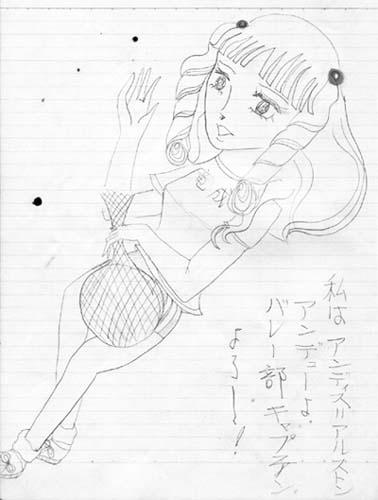 私は アンディス=アルストン
アンデューよ。
バレー部キャプテン
よろしく!